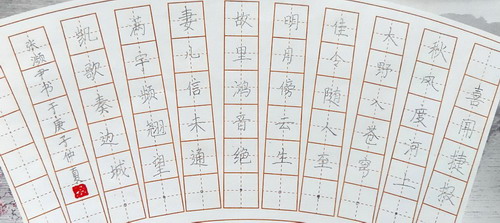 喜闻捷报
秋风度河上
大野入苍穹
佳令随人至，
明月傍云生。
故里鸿音绝，
妻儿信未通。
满宇频翘望，
凯歌奏边城
张尹书于庚子仲夏